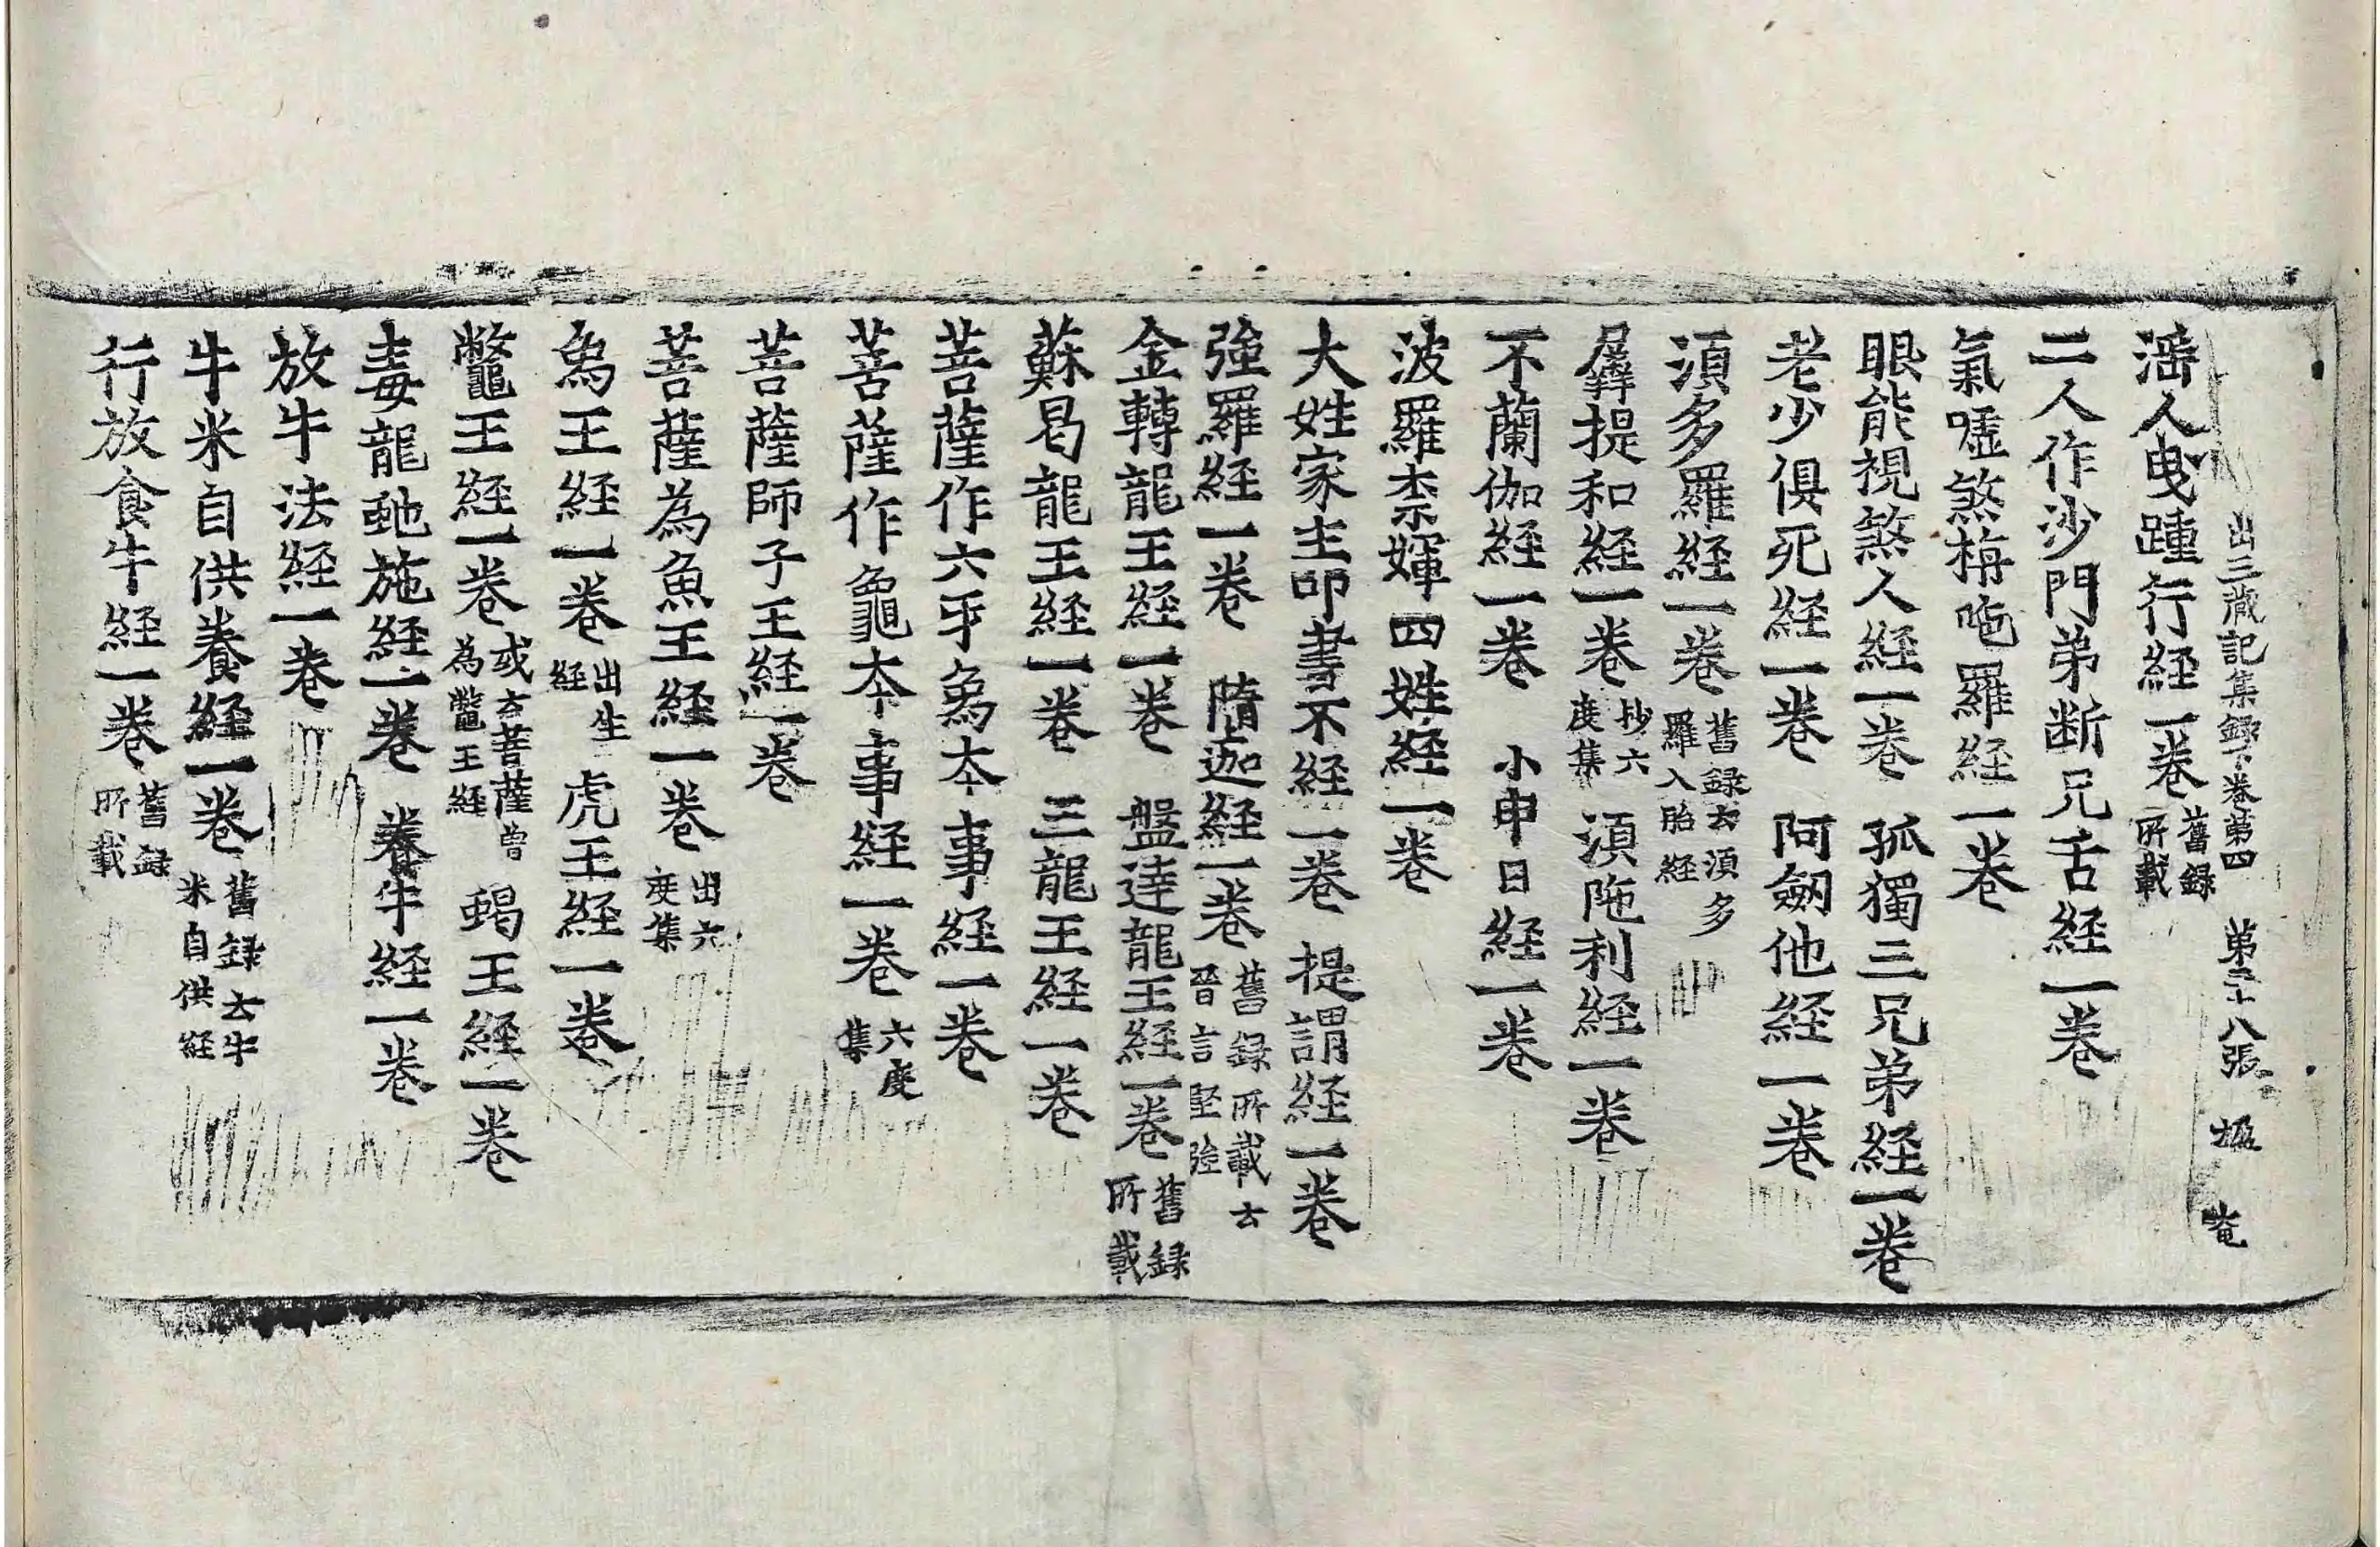 出三藏記集録下卷第四 第三十八張 楹
婬人曳踵行経一卷舊録所載
二人作沙門弟断兄舌経一卷
氣嘘煞栴陁羅経一卷
眼能視煞人経一卷 孤獨三兄弟経一卷
老少俱死経一卷 阿劒他経一卷
湏多羅経一卷舊録云湏多羅入胎経
羼提和経一卷抄六度集 湏陁利経一卷
不蘭伽経一卷 小申日経一卷
波羅柰 四姓経一卷
大姓家主叩書不経一卷 提謂経一卷
強羅経一卷 墮迦経一卷舊録所載云晉言堅強
金轉龍王経一卷 盤達龍王経一卷舊録所載
蘇曷龍王経一卷 三龍王経一卷
菩薩作六牙象夲事経一卷
菩薩作龜夲事経一卷六度集
菩薩師子王経一卷
菩薩為魚王経一卷出六度集
象王経一卷出生経 虎王経一卷
鼈王経一卷或云菩薩曾為鼈王経 蝎王経一卷
毒龍虵施経一卷 養牛経一卷
放牛法経一卷
牛米自供養経一卷舊録云牛米自供経
行放食牛経一卷舊録所載